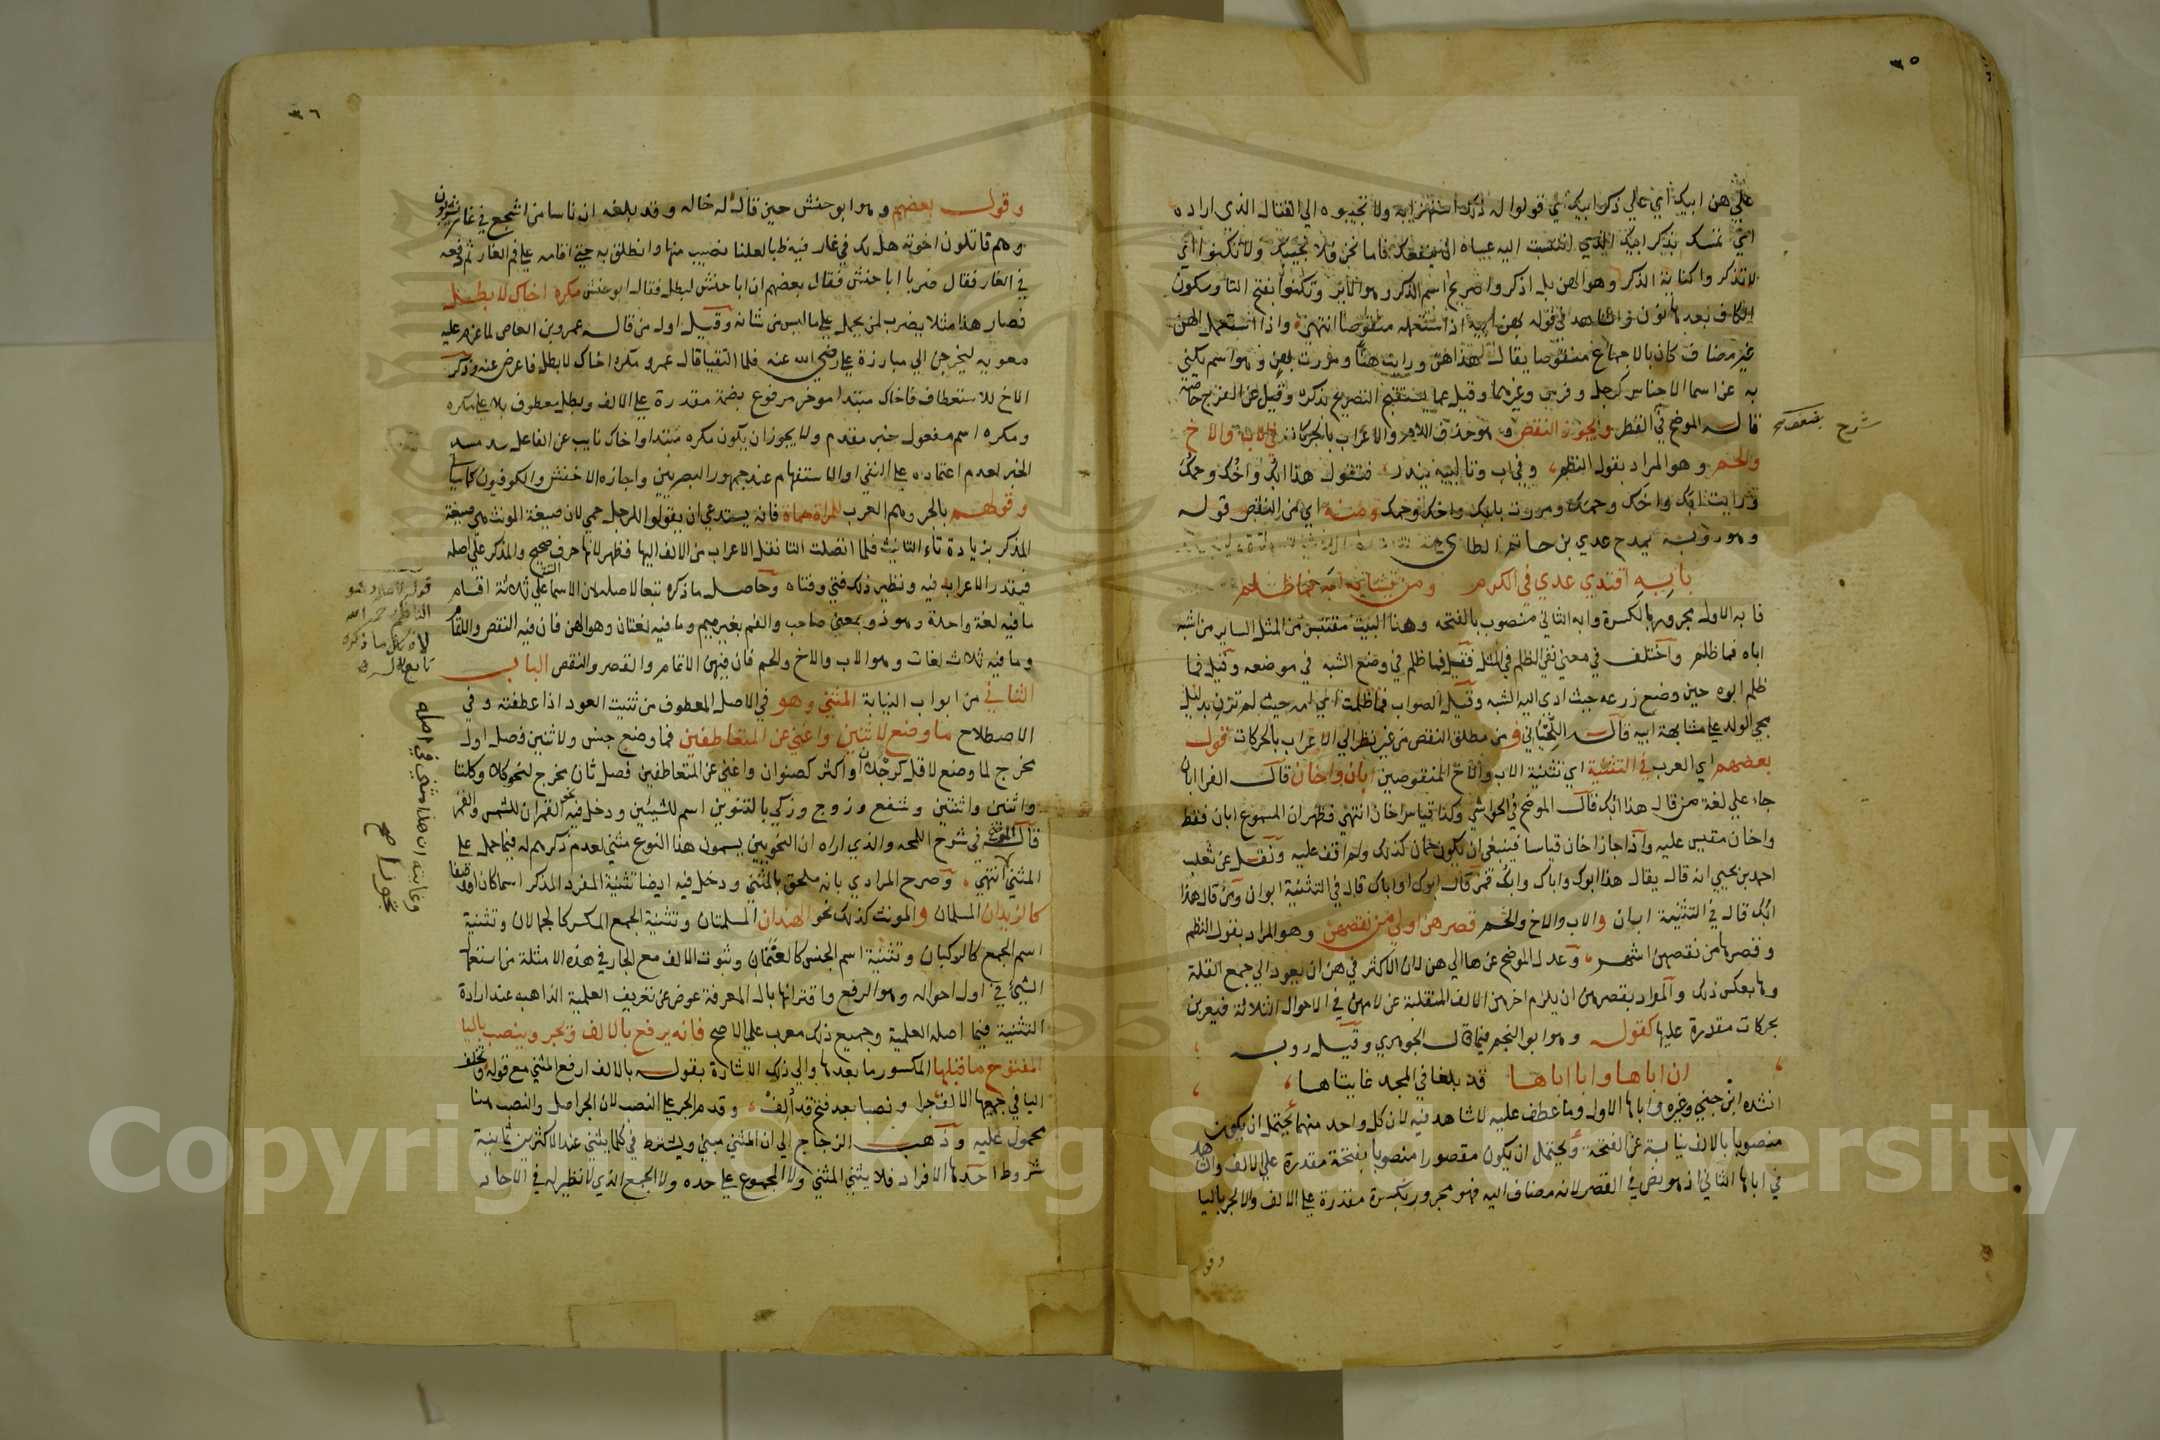 ٣٥
علي هن ابيك اي علي ذكر ابيك اي قولوا له ذلك استهزا به ولا تجيبوه الي القتال الذي اراده
اي تمسك بذكر ابيك الذي انتسبت اليه عساه ان ينفعك فاما نحن فلا نجيبك ولا تكنوا اي
لا تذكروا كناية الذكر وهو الهن بل اذكروا صريح اسم الذكر وهو الاير وتكنوا بفتح التا وسكون
الكاف بعدها نون والشاهد في قوله بهن ابيه اذ استعمله منقوصا انتهي واذا استعمل الهن
غير مضاف كان بالاجماع منقوصا يقال هذا هن ورايت هنا ومررت بهن وهو اسم يكني
به عن اسما الاجناس كرجل وفرس وغيرهما وقيل عما يستقبح التصريح بذكره وقيل عن الفرج خاصة
قال الموضح في القطر ويجوز النقص وهو حذف اللام والاعراب بالحركات في الاب والاخ
والحم وهو المراد بقول النظم وفي اب وتالييه يندر فتقول هذا ابك واخك وحمك
ورايت ابك واخك وحمك ومررت بابك واخك وحمك ومنه اي من النقص قوله
وهو روبة يمدح عدي بن حاتم الطائي
بابه اقتدي عدي في الكرم ومن يشابه ابه فما ظلم
فابه الاول مجرور بالكسرة وابه الثاني منصوب بالفتحه وهذا البيت مقتبس من المثل الساير من اشبه
اباه فما ظلم واختلف في معني نفي الظلم في المثل فقيل فما ظلم في وضع الشبه في موضعه وقيل فما
ظلم ابوه حين وضع زرعه حيث ادي اليه الشبه وقيل الصواب فما ظلمت اي امه حيث لم تزن بدليل
مجي الولد علي مشابهة ابيه قاله اللخمي ومن مطلق النقص من غير نظر الي الاعراب بالحركات قول
بعضهم اي العرب في التثنية اي تثنية الاب والاخ المنقوصين ابان واخان قال الفرا ابان
جاء علي لغة من قال هذا ابك قال الموضح في الحواشي وكذا قياس اخان انتهي فظهر ان المسموع ابان فقط
واخان مقيس عليه واذا جاز اخان قياسا فينبغي ان يكون حمان كذلك ولم اقف عليه ونقل عن ثعلب
احمد بن يحيي انه قال يقال هذا ابوك واباك وابك فمن قال ابوك او اباك قال في التثنية ابوان ومن قال هذا
ابك قال في التثنية ابان والاب والاخ والحم قصرهن اولي من نقصهن وهو المراد بقول النظم
وقصرها من نقصهن اشهر وعدل الموضح عن ها الي هن لان الاكثر في هن ان يعود الي جمع القلة
وها بعكس ذلك والمراد بقصرهن ان يلزم اخرهن الالف المنقلبة عن لامهن في الاحوال الثلاثة فيعربن
بحركات مقدرة عليها كقوله وهو ابو النجم فيما قال الجوهري وقيل روبه
ان اباها وابا اباها قد بلغا في المجد غايتاها
انشده ابن جني وغيره واباها الاول وما عطف عليه لا شاهد فيه لان كل واحد منهما يحتمل ان يكون
منصوبا بالالف نيابة عن الفتحة ويحتمل ان يكون مقصورا منصوبا بفتحة مقدرة علي الالف والشاهد
في اباها الثاني اذ هو نص في القصر لانه مضاف اليه فهو مجرور بكسرة مقدرة علي الالف والا لجر باليا
وقول
شرح
٣٦
وقول بعضهم وهو ابو حنش حين قال له خاله وقد بلغه ان ناسا من اشجع في غار يشربون
وهم قاتلون اخوته هل لك في غار فيه ظبا لعلنا نصيب منها وانطلق به حتي اقامه علي فم الغار ثم دفعه
في الغار فقال ضربا ابا حنش فقال بعضهم ان ابا حنش لبطل فقال ابو حنش مكره اخاك لا بطل
فصار هذا مثلا يضرب لمن يحمل علي ما ليس من شانه وقيل اول من قاله عمرو بن العاص لما عزم عليه
معويه ليخرجن الي مبارزة علي رضي الله عنه فلما التقيا قال عمرو مكره اخاك لا بطل فاعرض عنه وذكر
الاخ للاستعطاف فاخاك مبتدا موخر مرفوع بضمة مقدرة علي الالف وبطل معطوف بلا علي مكره
ومكره اسم مفعول خبر مقدم ولا يجوز ان يكون مكره مبتدا واخاك نايب عن الفاعل سد مسد
الخبر لعدم اعتماده علي النفي او الاستفهام عند جمهور البصريين واجازه الاخفش والكوفيون كما سياتي
وقولهم بالجر وهم العرب للمراة حماة فانه يستدعي ان يقولوا للرجل حمي لان صيغة المونث هي صيغة
المذكر بزيادة تاء التانيث فلما اتصلت التا نقل الاعراب من الالف اليها فظهر لانها حرف صحيح والمذكر علي اصله
فيقدر الاعراب فيه ونظير ذلك فتي وفتاه وحاصل ما ذكره تبعا لاصله ان الاسما علي ثلاثة اقسام
ما فيه لغة واحدة وهو ذو بمعني صاحب والفم بغير ميم وما فيه لغتان وهو الهن فان فيه النقص والاتمام
وما فيه ثلاث لغات وهو الاب والاخ والحم فان فيهن الاتمام والقصر والنقص الباب
الثاني من ابواب النيابة المثني وهو في الاصل المعطوف من ثنيت العود اذا عطفته وفي
الاصطلاح ما وضع لاثنين واغني عن المتعاطفين فما وضع جنس ولاثنين فصل اول
يخرج لما وضع لاقل كرجلان او اكثر كصنوان واغني عن المتعاطفين فصل ثان يخرج لنحو كلا وكلتا
واثنين واثنتين وشفع وزوج وزكي بالتنوين اسم للشيئين ودخل فيه نحو القمران للشمس والقمر
قال الموضح في شرح اللمحه والذي اراه ان النحويين يسمون هذا النوع مثني لعدم ذكرهم له فيما حمل علي
المثني انتهي وصرح المرادي بانه ملحق بالمثني ودخل فيه ايضا تثنية المفرد المذكر اسما كان او صفة
كالزيدان المسلمان والمونث كذلك نحو الهندان المسلمتان وتثنية الجمع المكسر كالجمالان وتثنية
اسم الجمع كالركبان وتثنية اسم الجنس كالغنمان وثبوت الالف مع الجار في هذه الامثلة من استعمال
الشي في اول احواله وهو الرفع واقترانها بال المعرفة عوض عن تعريف العلمية الذاهبه عند ارادة
التثنية فيما اصله العلمية وجميع ذلك معرب علي الاصح فانه يرفع بالالف ويجر وينصب باليا
المفتوح ما قبلها المكسور ما بعدها والي ذلك الاشارة بقوله بالالف ارفع المثني مع قوله وتخلف
اليا في جميعها الالف جرا ونصبا بعد فتح قد الف وقدم الجر علي النصب لان الجر اصل والنصب هنا
محمول عليه وذهب الزجاج الي ان المثني مبني ويشترط في كل ما يثني عند الاكثرين ثمانية
شروط احدها الافراد فلا يثني المثني ولا المجموع علي حده ولا الجمع الذي لا نظير له في الاحاد
لان كل ما ذكره
وغايته ان هذا مشي في اصله
Copyright © King Saud University